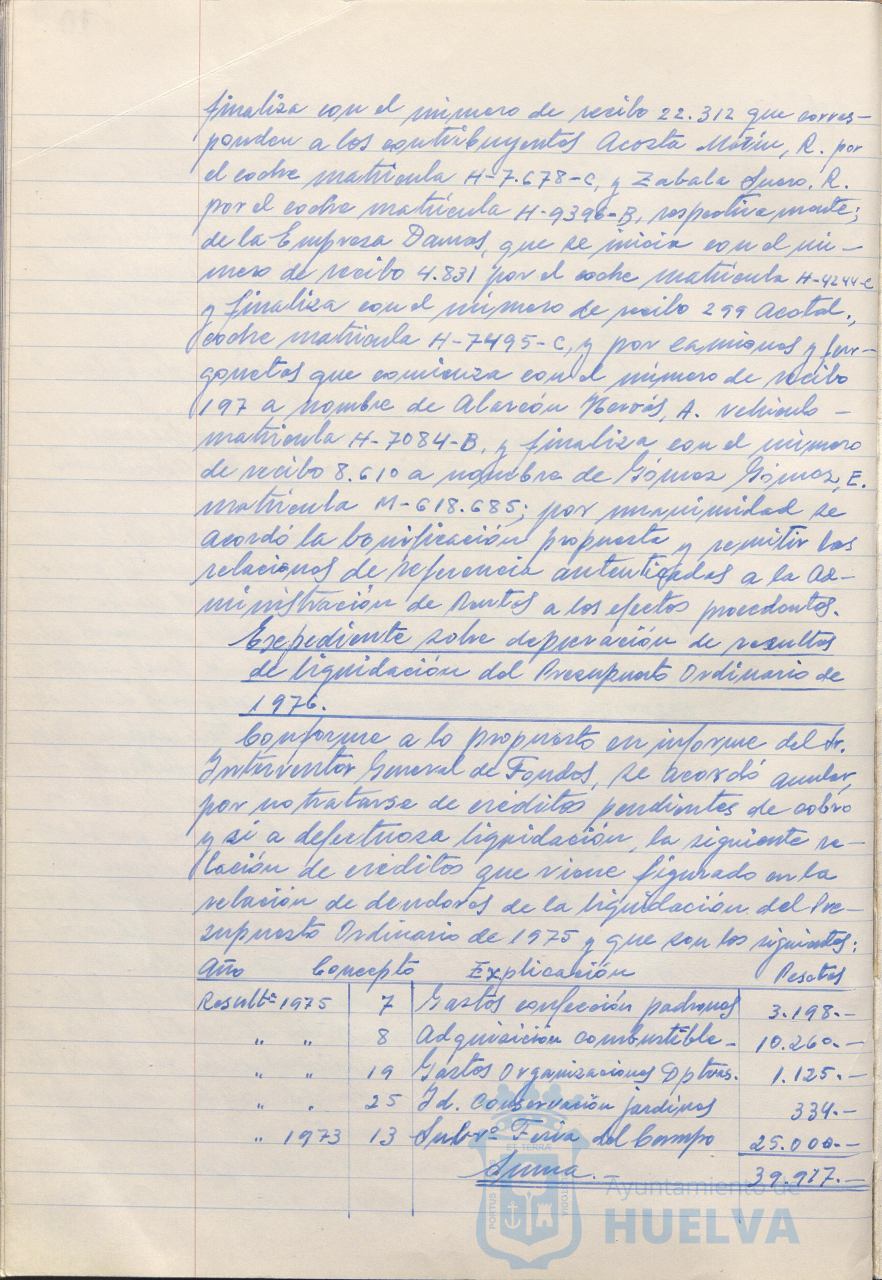 finaliza con el número de recibo 22.312 que corres-
ponden a los contribuyentes Acosta Morin, R. por
el coche matrícula H-7.678-C, y Zabala Suero. R.
por el coche matrícula H-9396-B, respectivamente;
de la Empresa Damas, que se inicia con el nú-
mero de recibo 4.831 por el coche matrícula H-4244-C
y finaliza con el número de recibo 299 Acotal.,
coche matrícula H-7495-C, y por camiones y fur-
gonetas que comienza con el número de recibo
197 a nombre de Alarcón Hervás, A. vehículo -
matrícula H-7084-B, y finaliza con el número
de recibo 8.610 a nombre de Gómez Gómez, E.
matrícula M-618.685; por unanimidad se
acordó la bonificación propuesta y remitir las
relaciones de referencia autentificadas a la Ad-
ministración de Rentas a los efectos procedentes.
Expediente sobre depuración de resultas
de liquidación del Presupuesto Ordinario de
1976.
Conforme a lo propuesto en informe del Sr.
Interventor General de Fondos, se acordó anular,
por no tratarse de créditos pendientes de cobro
y sí a defectuosa liquidación, la siguiente re-
lación de créditos que viene figurado en la
relación de deudores de la liquidación del Pre-
supuesto Ordinario de 1975 y que son los siguientes:
Año Concepto Explicación Pesetas
Resultª 1975 7 Gastos confección padrones 3.198.-
" " 8 Adquisición combustible- 10.260.-
" " 19 Gastos Organizaciones Dptvas. 1.125.-
" " 25 Id. Conservación jardines 334.-
" 1973 13 Subvº Feria del Campo 25.000.-
Suma.- 39.917.-
PORTUS
ET TERRA
CUSTODIA
Ayuntamiento de
HUELVA